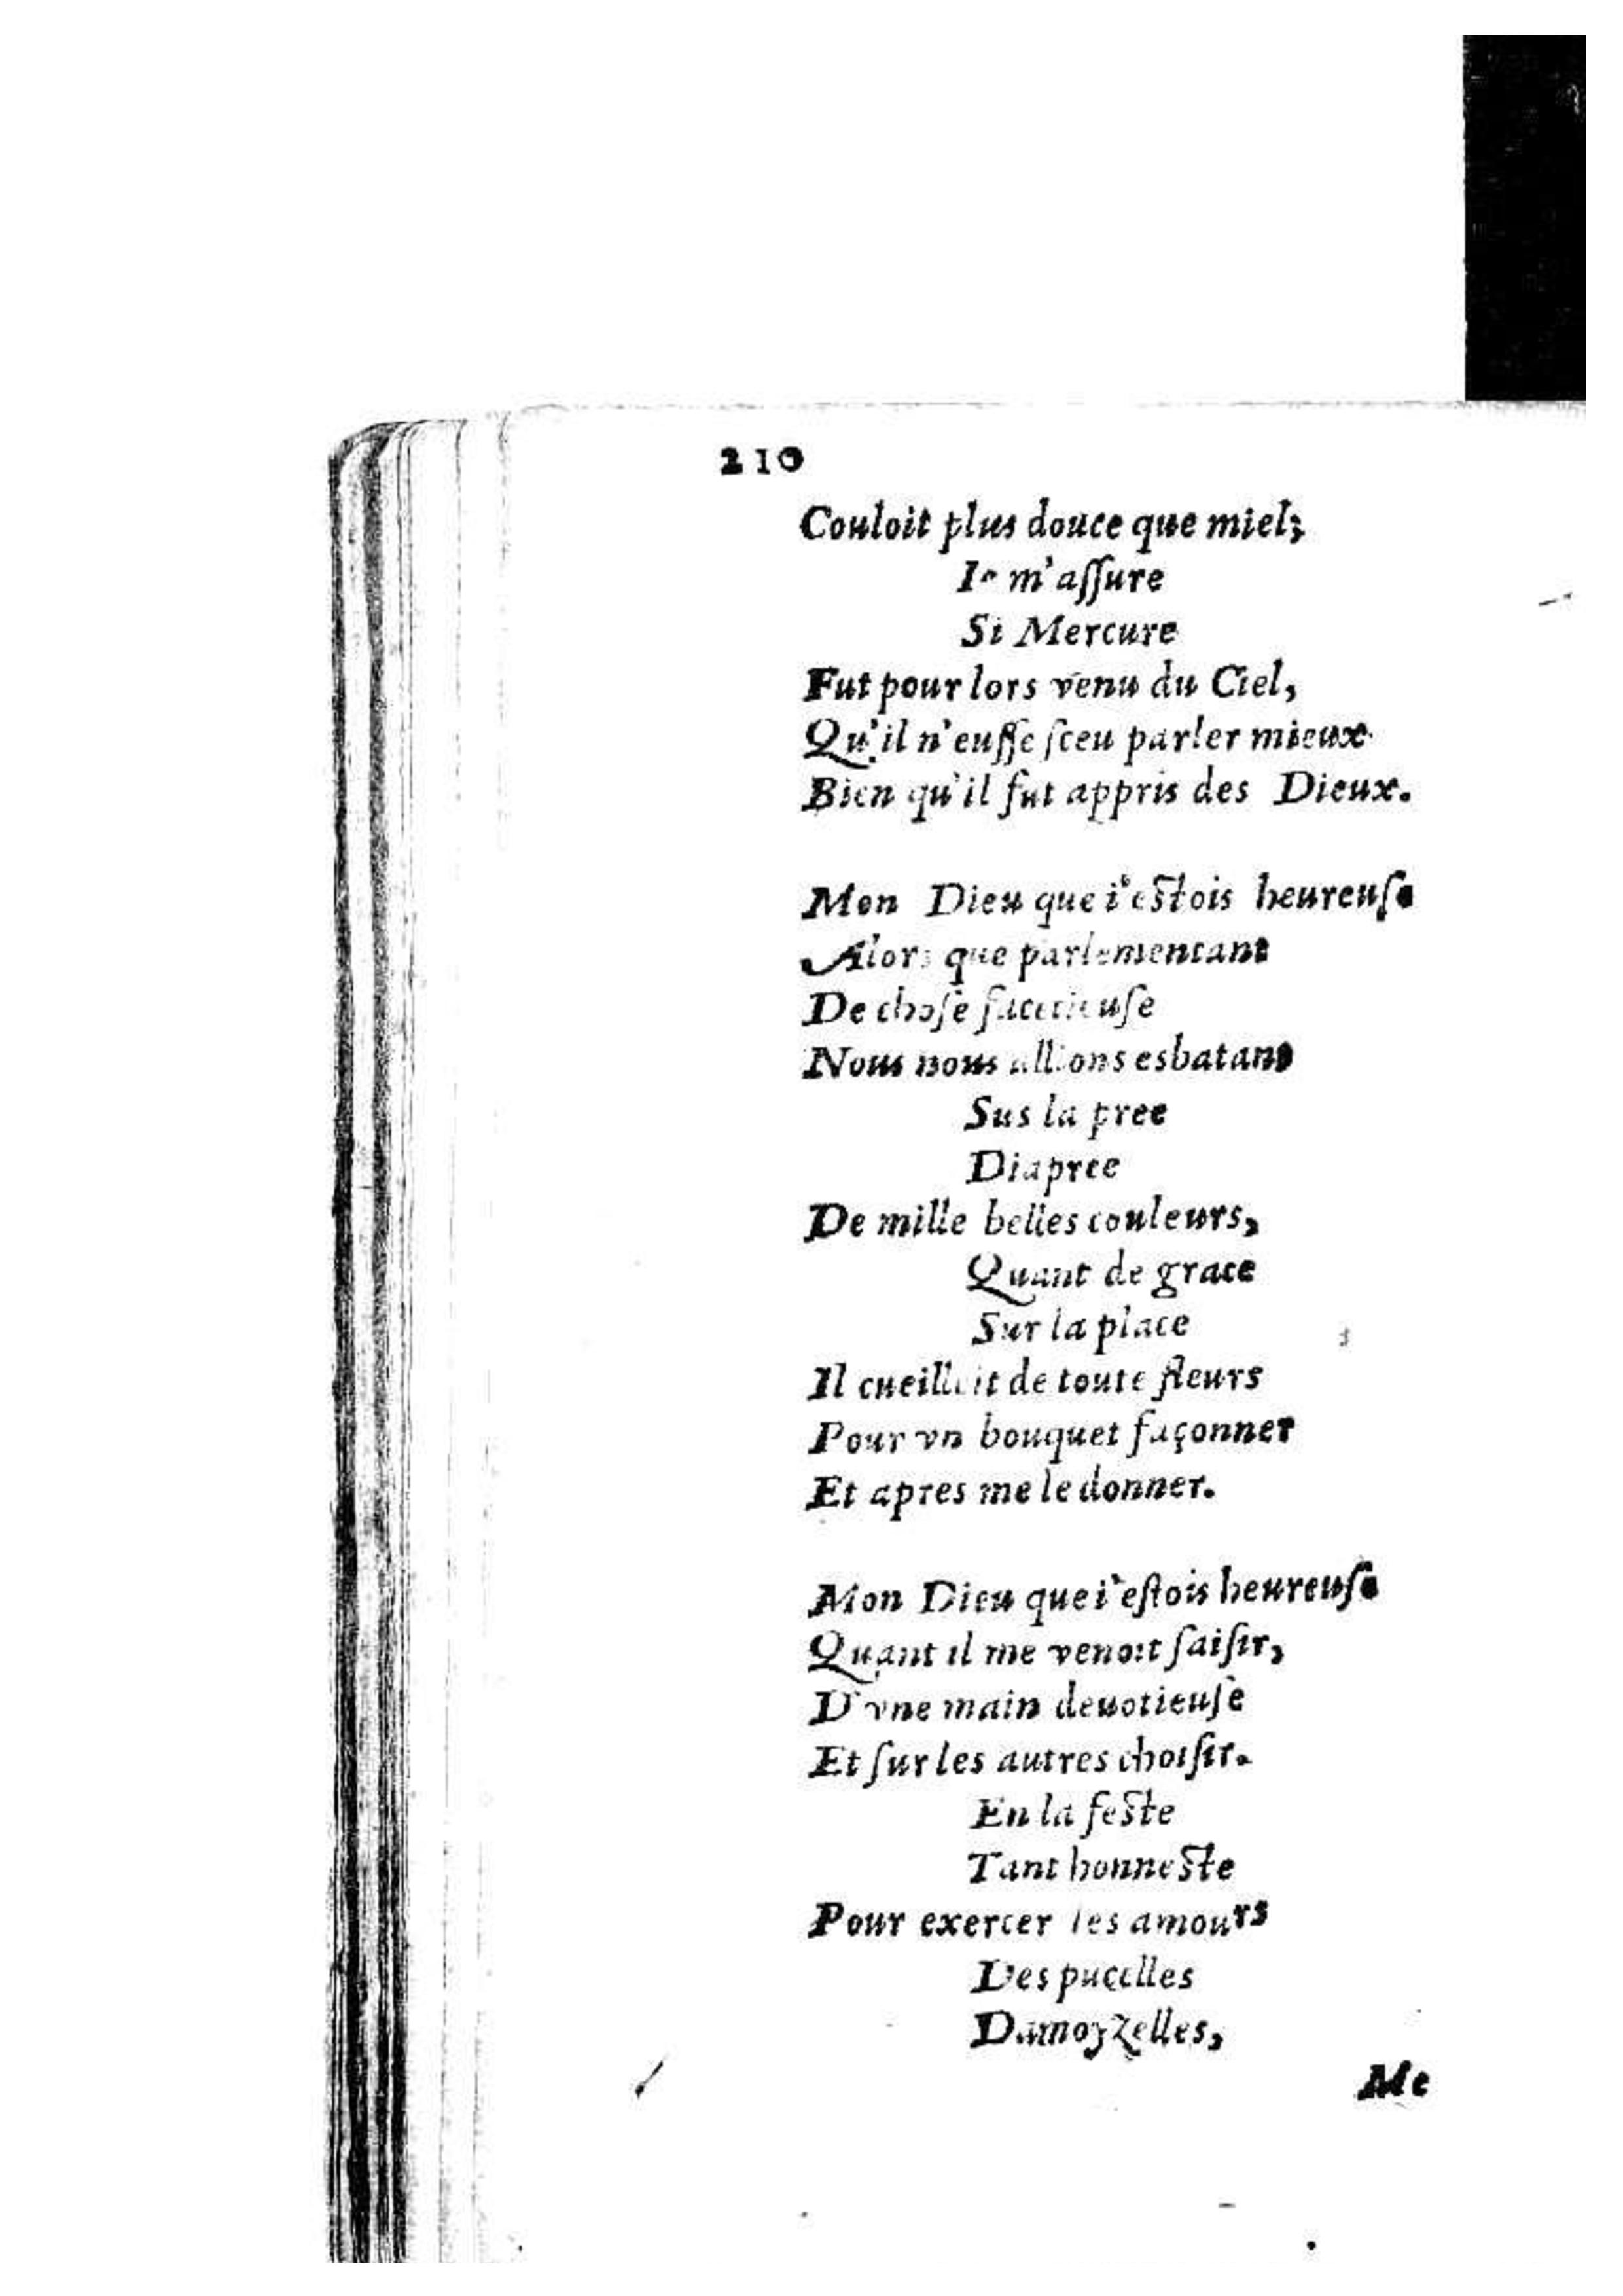 210
Couloit plus douce que miel;
Ie m'aſſure
Si Mercure
Fut pour lors venu du Ciel,
Qu'il n'euſſe ſceu parler mieux
Bien qu'il fut appris des Dieux.
Mon Dieu que i'eſtois heureuſe
Alors que parlementant
De choſe facetieuſe
Nous nous allions esbatant
Sus la pree
Diapree
De mille belles couleurs,
Quant de grace
Sur la place
Il cueilloit de toute fleurs
Pour vn bouquet façonner
Et apres me le donner.
Mon Dieu que i'eſtois heureuſe
Quant il me venoit ſaiſir,
D'vne main deuotieuſe
Et ſur les autres choiſir.
En la feſte
Tant honneſte
Pour exercer les amours
Des pucelles
Damoyzelles,
Me